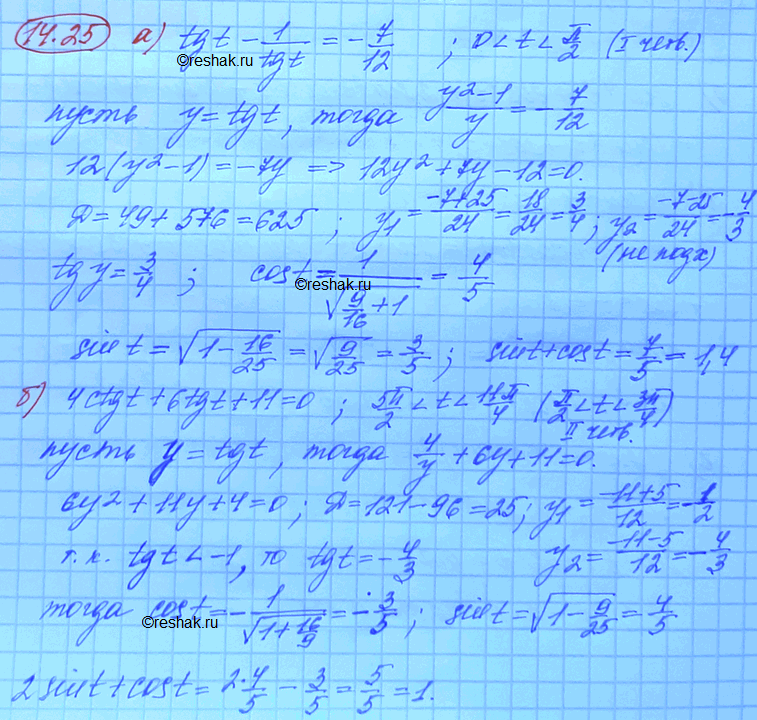 14.25 а) tgt - 1/tgt = -7/12 ; 0 < t < π/2 (I четв.)
©reshak.ru
пусть y = tgt, тогда (y²-1)/y = -7/12
12(y²-1) = -7y => 12y²+7y-12=0.
Д = 49+576=625 ; y₁ = (-7+25)/24 = 18/24 = 3/4 ; y₂ = (-7-25)/24 = -4/3
(не подх)
tg y = 3/4 ; cost = 1/√(9/16+1) = 4/5
©reshak.ru
sin t = √(1-16/25) = √(9/25) = 3/5 ; sint+cost = 7/5 = 1,4
б) 4ctgt+6tgt+11=0 ; 5π/2 < t < 11π/4 (π/2 < t < 3π/4)
II четв.
пусть y = tgt, тогда 4/y + 6y+11=0.
6y²+11y+4=0 ; Д=121-96=25 ; y₁ = (-11+5)/12 = -1/2
т.к. tgt < -1, то tgt = -4/3 y₂ = (-11-5)/12 = -4/3
тогда cost = -1/√(1+16/9) = -3/5 ; sint = √(1-9/25) = 4/5
©reshak.ru
2sint+cost = 2·4/5 - 3/5 = 5/5 = 1.